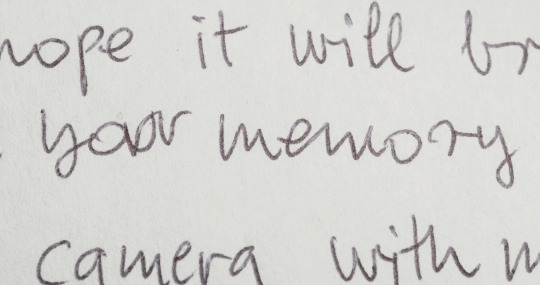 hope it will br
your memory
camera with m